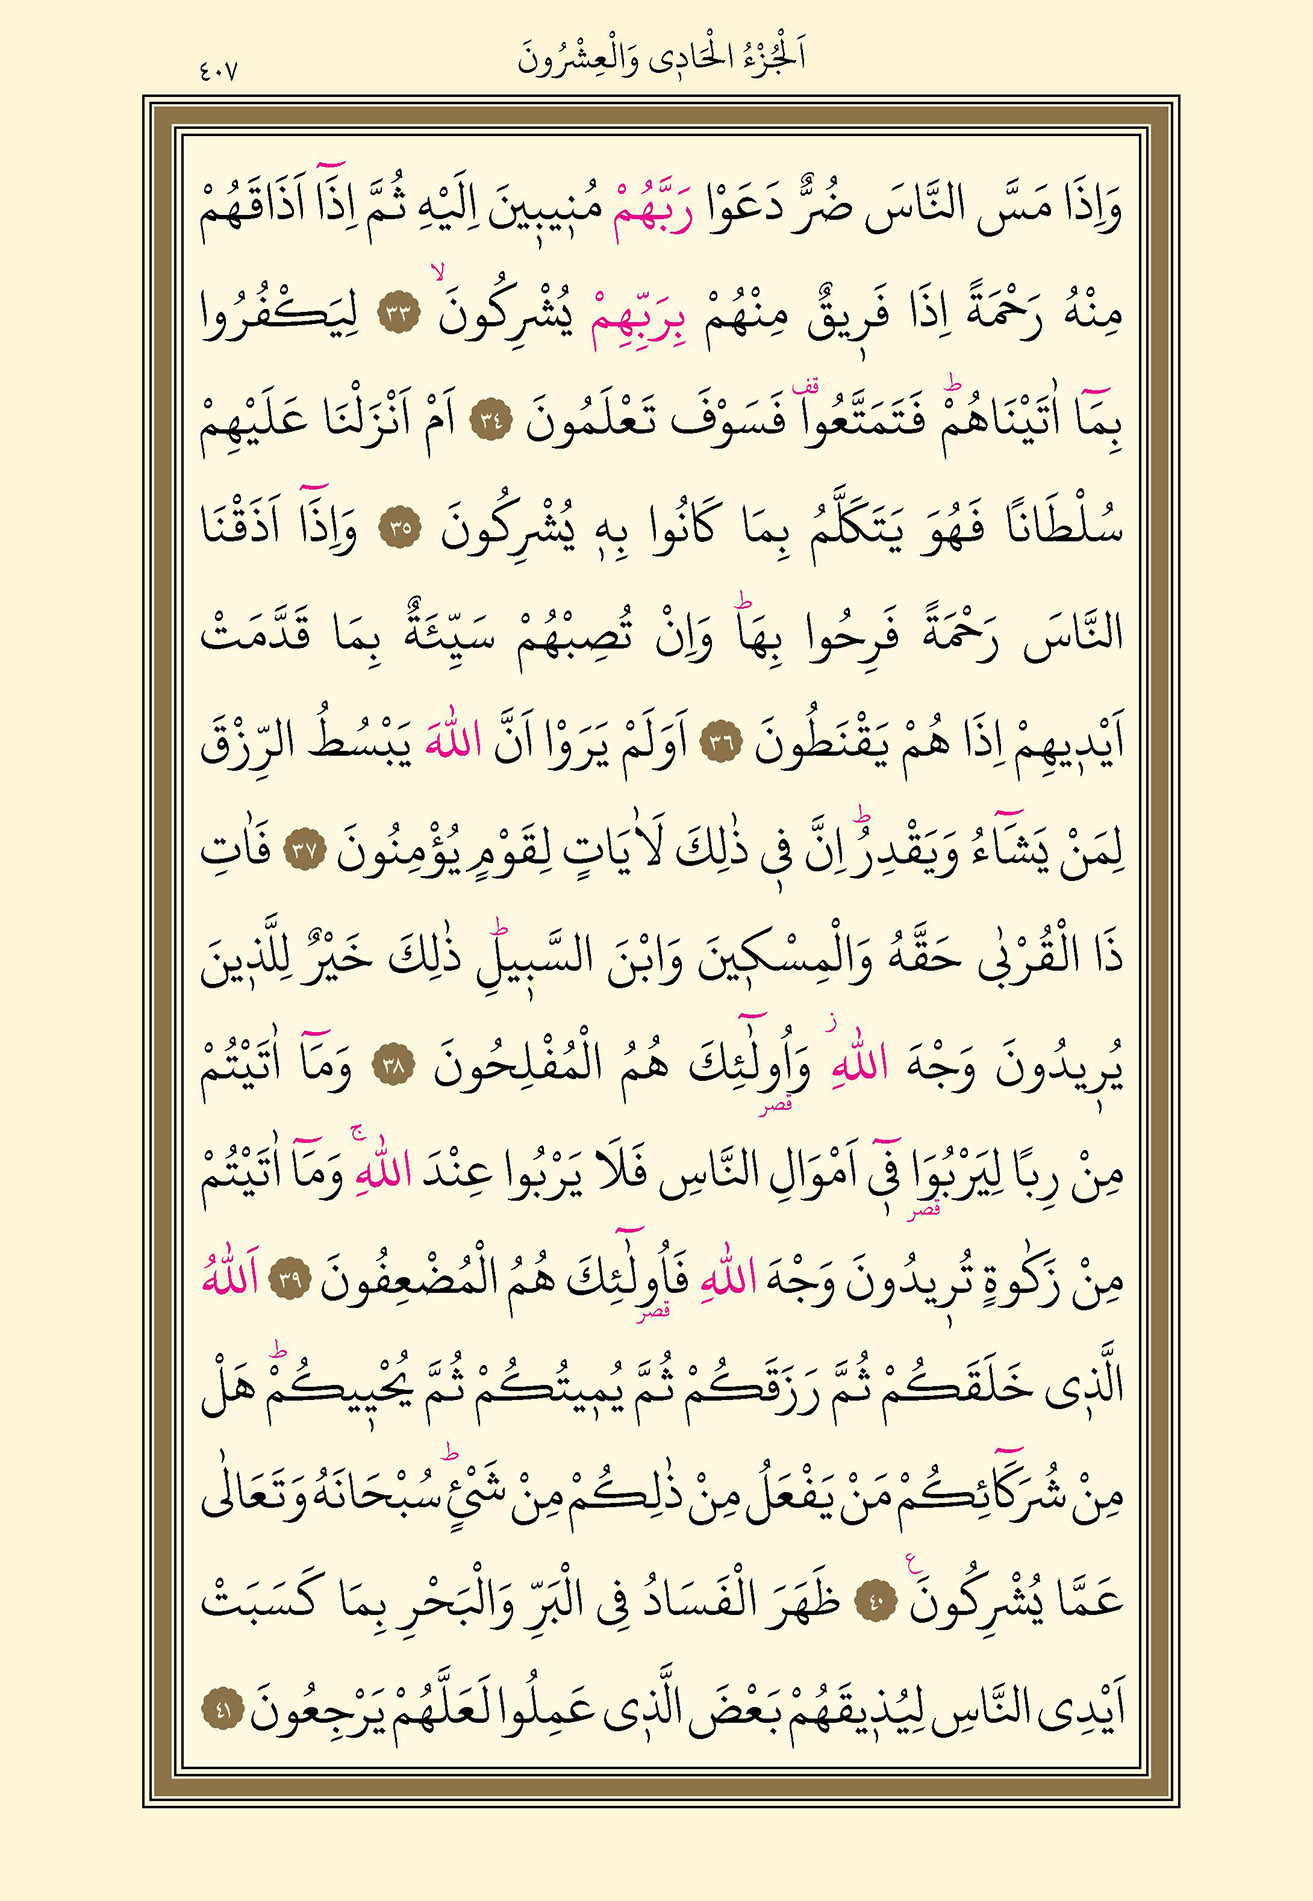 اَلْجُزْءُ الْحَاد۪ى وَالْعِشْرُونَ ٤٠٧
وَاِذَا مَسَّ النَّاسَ ضُرٌّ دَعَوْا رَبَّهُمْ مُن۪يب۪ينَ اِلَيْهِ ثُمَّ اِذَٓا اَذَاقَهُمْ
مِنْهُ رَحْمَةً اِذَا فَر۪يقٌ مِنْهُمْ بِرَبِّهِمْ يُشْرِكُونَۙ ٣٣ لِيَكْفُرُوا
بِمَٓا اٰتَيْنَاهُمْۜ فَتَمَتَّعُوا۠ قف فَسَوْفَ تَعْلَمُونَ ٣٤ اَمْ اَنْزَلْنَا عَلَيْهِمْ
سُلْطَانًا فَهُوَ يَتَكَلَّمُ بِمَا كَانُوا بِه۪ يُشْرِكُونَ ٣٥ وَاِذَٓا اَذَقْنَا
النَّاسَ رَحْمَةً فَرِحُوا بِهَاۜ وَاِنْ تُصِبْهُمْ سَيِّئَةٌ بِمَا قَدَّمَتْ
اَيْد۪يهِمْ اِذَا هُمْ يَقْنَطُونَ ٣٦ اَوَلَمْ يَرَوْا اَنَّ اللّٰهَ يَبْسُطُ الرِّزْقَ
لِمَنْ يَشَٓاءُ وَيَقْدِرُۜ اِنَّ ف۪ى ذٰلِكَ لَاٰيَاتٍ لِقَوْمٍ يُؤْمِنُونَ ٣٧ فَاٰتِ
ذَا الْقُرْبٰى حَقَّهُ وَالْمِسْك۪ينَ وَابْنَ السَّب۪يلِۜ ذٰلِكَ خَيْرٌ لِلَّذ۪ينَ
يُر۪يدُونَ وَجْهَ اللّٰهِ ز وَاُو۬لٰٓئِكَ قصر هُمُ الْمُفْلِحُونَ ٣٨ وَمَٓا اٰتَيْتُمْ
مِنْ رِبًا لِيَرْبُوَا قصر ف۪ٓى اَمْوَالِ النَّاسِ فَلَا يَرْبُوا عِنْدَ اللّٰهِۚ وَمَٓا اٰتَيْتُمْ
مِنْ زَكٰوةٍ تُر۪يدُونَ وَجْهَ اللّٰهِ فَاُو۬لٰٓئِكَ قصر هُمُ الْمُضْعِفُونَ ٣٩ اَللّٰهُ
الَّذ۪ى خَلَقَكُمْ ثُمَّ رَزَقَكُمْ ثُمَّ يُم۪يتُكُمْ ثُمَّ يُحْي۪يكُمْۜ هَلْ
مِنْ شُرَكَٓائِكُمْ مَنْ يَفْعَلُ مِنْ ذٰلِكُمْ مِنْ شَىْءٍۜ سُبْحَانَهُ وَتَعَالٰى
عَمَّا يُشْرِكُونَ ع ٤٠ ظَهَرَ الْفَسَادُ فِى الْبَرِّ وَالْبَحْرِ بِمَا كَسَبَتْ
اَيْدِى النَّاسِ لِيُذ۪يقَهُمْ بَعْضَ الَّذ۪ى عَمِلُوا لَعَلَّهُمْ يَرْجِعُونَ ٤١